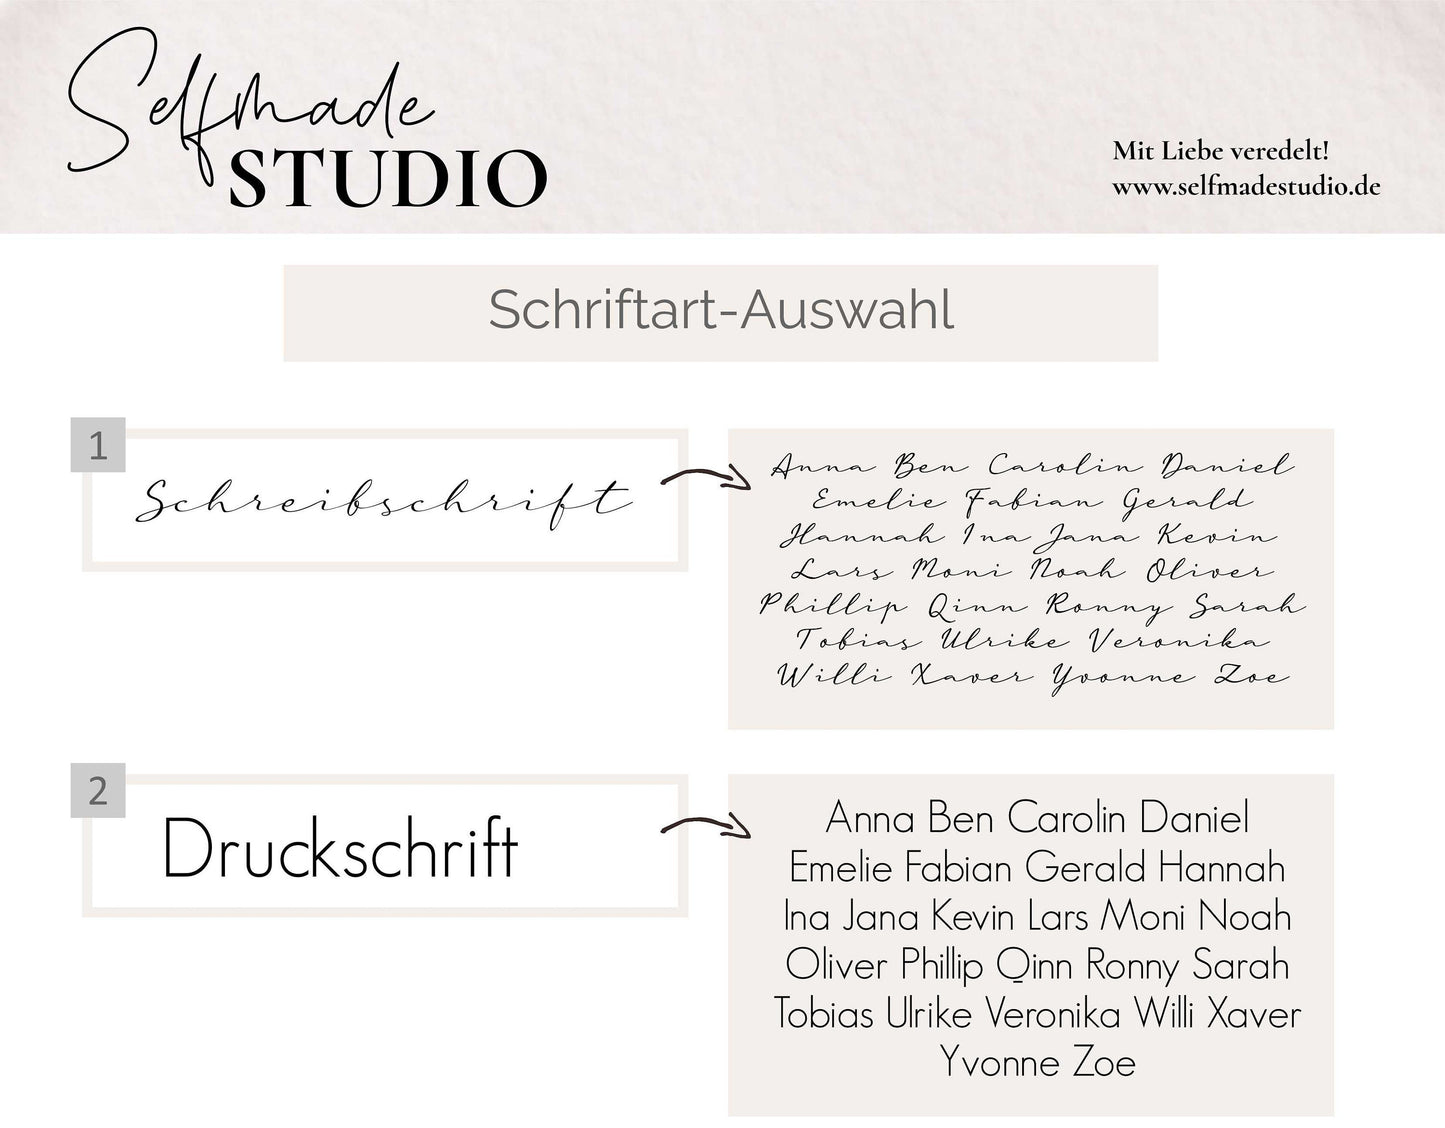 Selfmade
STUDIO
Mit Liebe veredelt!
www.selfmadestudio.de
Schriftart-Auswahl
1
Schreibschrift
Anna Ben Carolin Daniel
Emelie Fabian Gerald
Hannah Ina Jana Kevin
Lars Moni Noah Oliver
Phillip Qinn Ronny Sarah
Tobias Ulrike Veronika
Willi Xaver Yvonne Zoe
2
Druckschrift
Anna Ben Carolin Daniel
Emelie Fabian Gerald Hannah
Ina Jana Kevin Lars Moni Noah
Oliver Phillip Qinn Ronny Sarah
Tobias Ulrike Veronika Willi Xaver
Yvonne Zoe